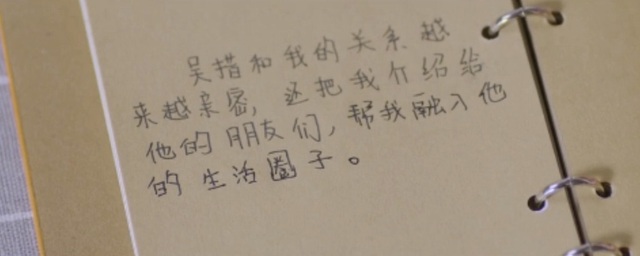 吴措和我的关系越
来越亲密,还把我介绍给
他的朋友们,帮我融入他
的生活圈子。